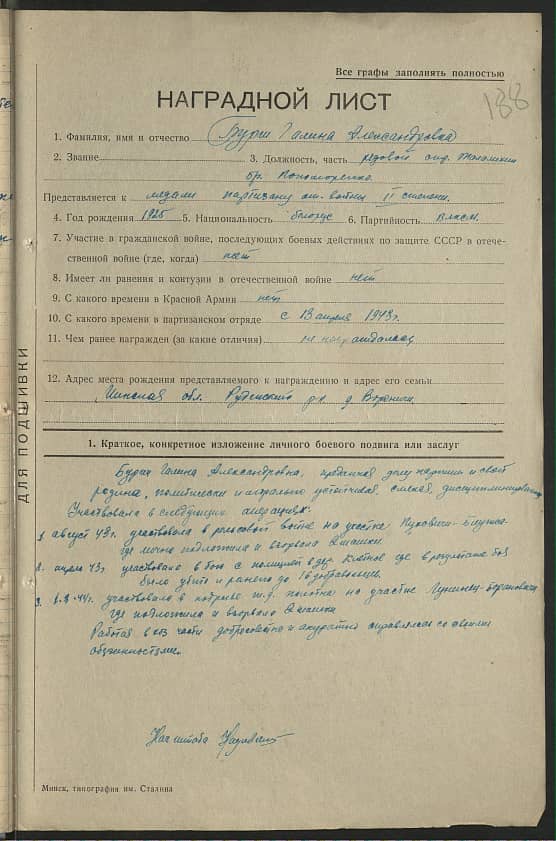 188
Все графы заполнять полностью
НАГРАДНОЙ ЛИСТ
1. Фамилия, имя и отчество Галина Александровка
2. Звание 3. Должность, часть рядовой отр.
бр. Пономаренко
Представляется к медали партизану от. войны II степени.
4. Год рождения 1925 5. Национальность белорус 6. Партийность влксм.
7. Участие в гражданской войне, последующих боевых действиях по защите СССР в отече-
ственной войне (где, когда) нет
8. Имеет ли ранения и контузии в отечественной войне нет
9. С какого времени в Красной Армии нет
10. С какого времени в партизанском отряде с 13 апреля 1943г.
11. Чем ранее награжден (за какие отличия) не награждалась
12. Адрес места рождения представляемого к награждению и адрес его семьи
Минская обл. Руденский р-н. д.
ДЛЯ ПОДШИВКИ
1. Краткое, конкретное изложение личного боевого подвига или заслуг
Галина Александровна, преданная делу партии и своей
родина, политически и морально устойчивая, смелая,
Участвовала в следующих операциях:
1 август 43г. участвовала в рельсовой войне на участке Пуховичи-
где лично подложила и взорвала шашки.
2. 43г. участвовала в бою с полицией в дер. где в результате боя
было убито и ранено до 16 добровольцев.
3. 44г. участвовала в подрыве ж.д. полотна на участке Лунинец-Барановичи
где подложила и взорвала шашки
Работая в части добросовестно и акуратно справлялась со своими
обязанностями.
Нач штаба
Минск, типография им. Сталина